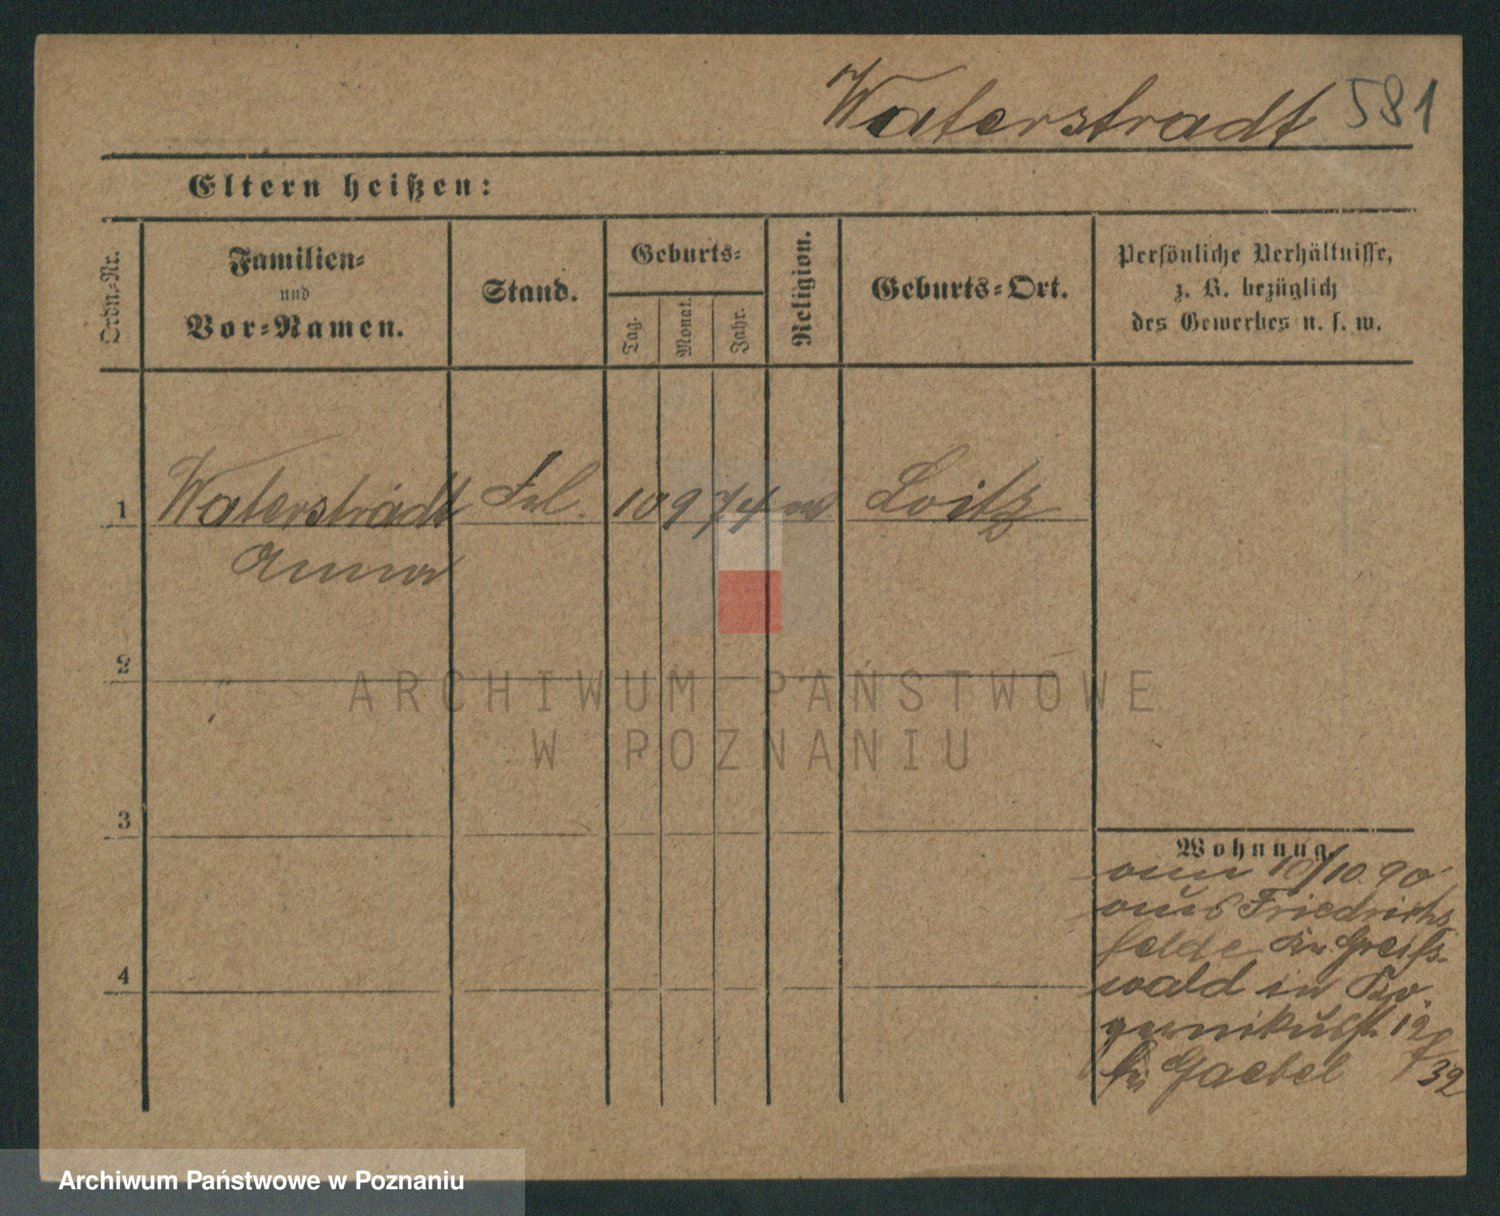 Waterstradt 581
Eltern heißen:
Ordn.-Nr.
Familien-
und
Vor-Namen.
Stand.
Geburts-
Tag.
Monat.
Jahr.
Religion.
Geburts-Ort.
Persönliche Verhältnisse,
z. B. bezüglich
des Gewerbes u. s. w.
1 Waterstradt Frl. 10 9 74 Loitz
Anna
2
ARCHIWUM PAŃSTWOWE
W POZNANIU
3
Wohnung.
10/10 90
aus Friedrichs
felde Kr. Greifs-
4
wald in
12
Gaebel 32
Archiwum Państwowe w Poznaniu